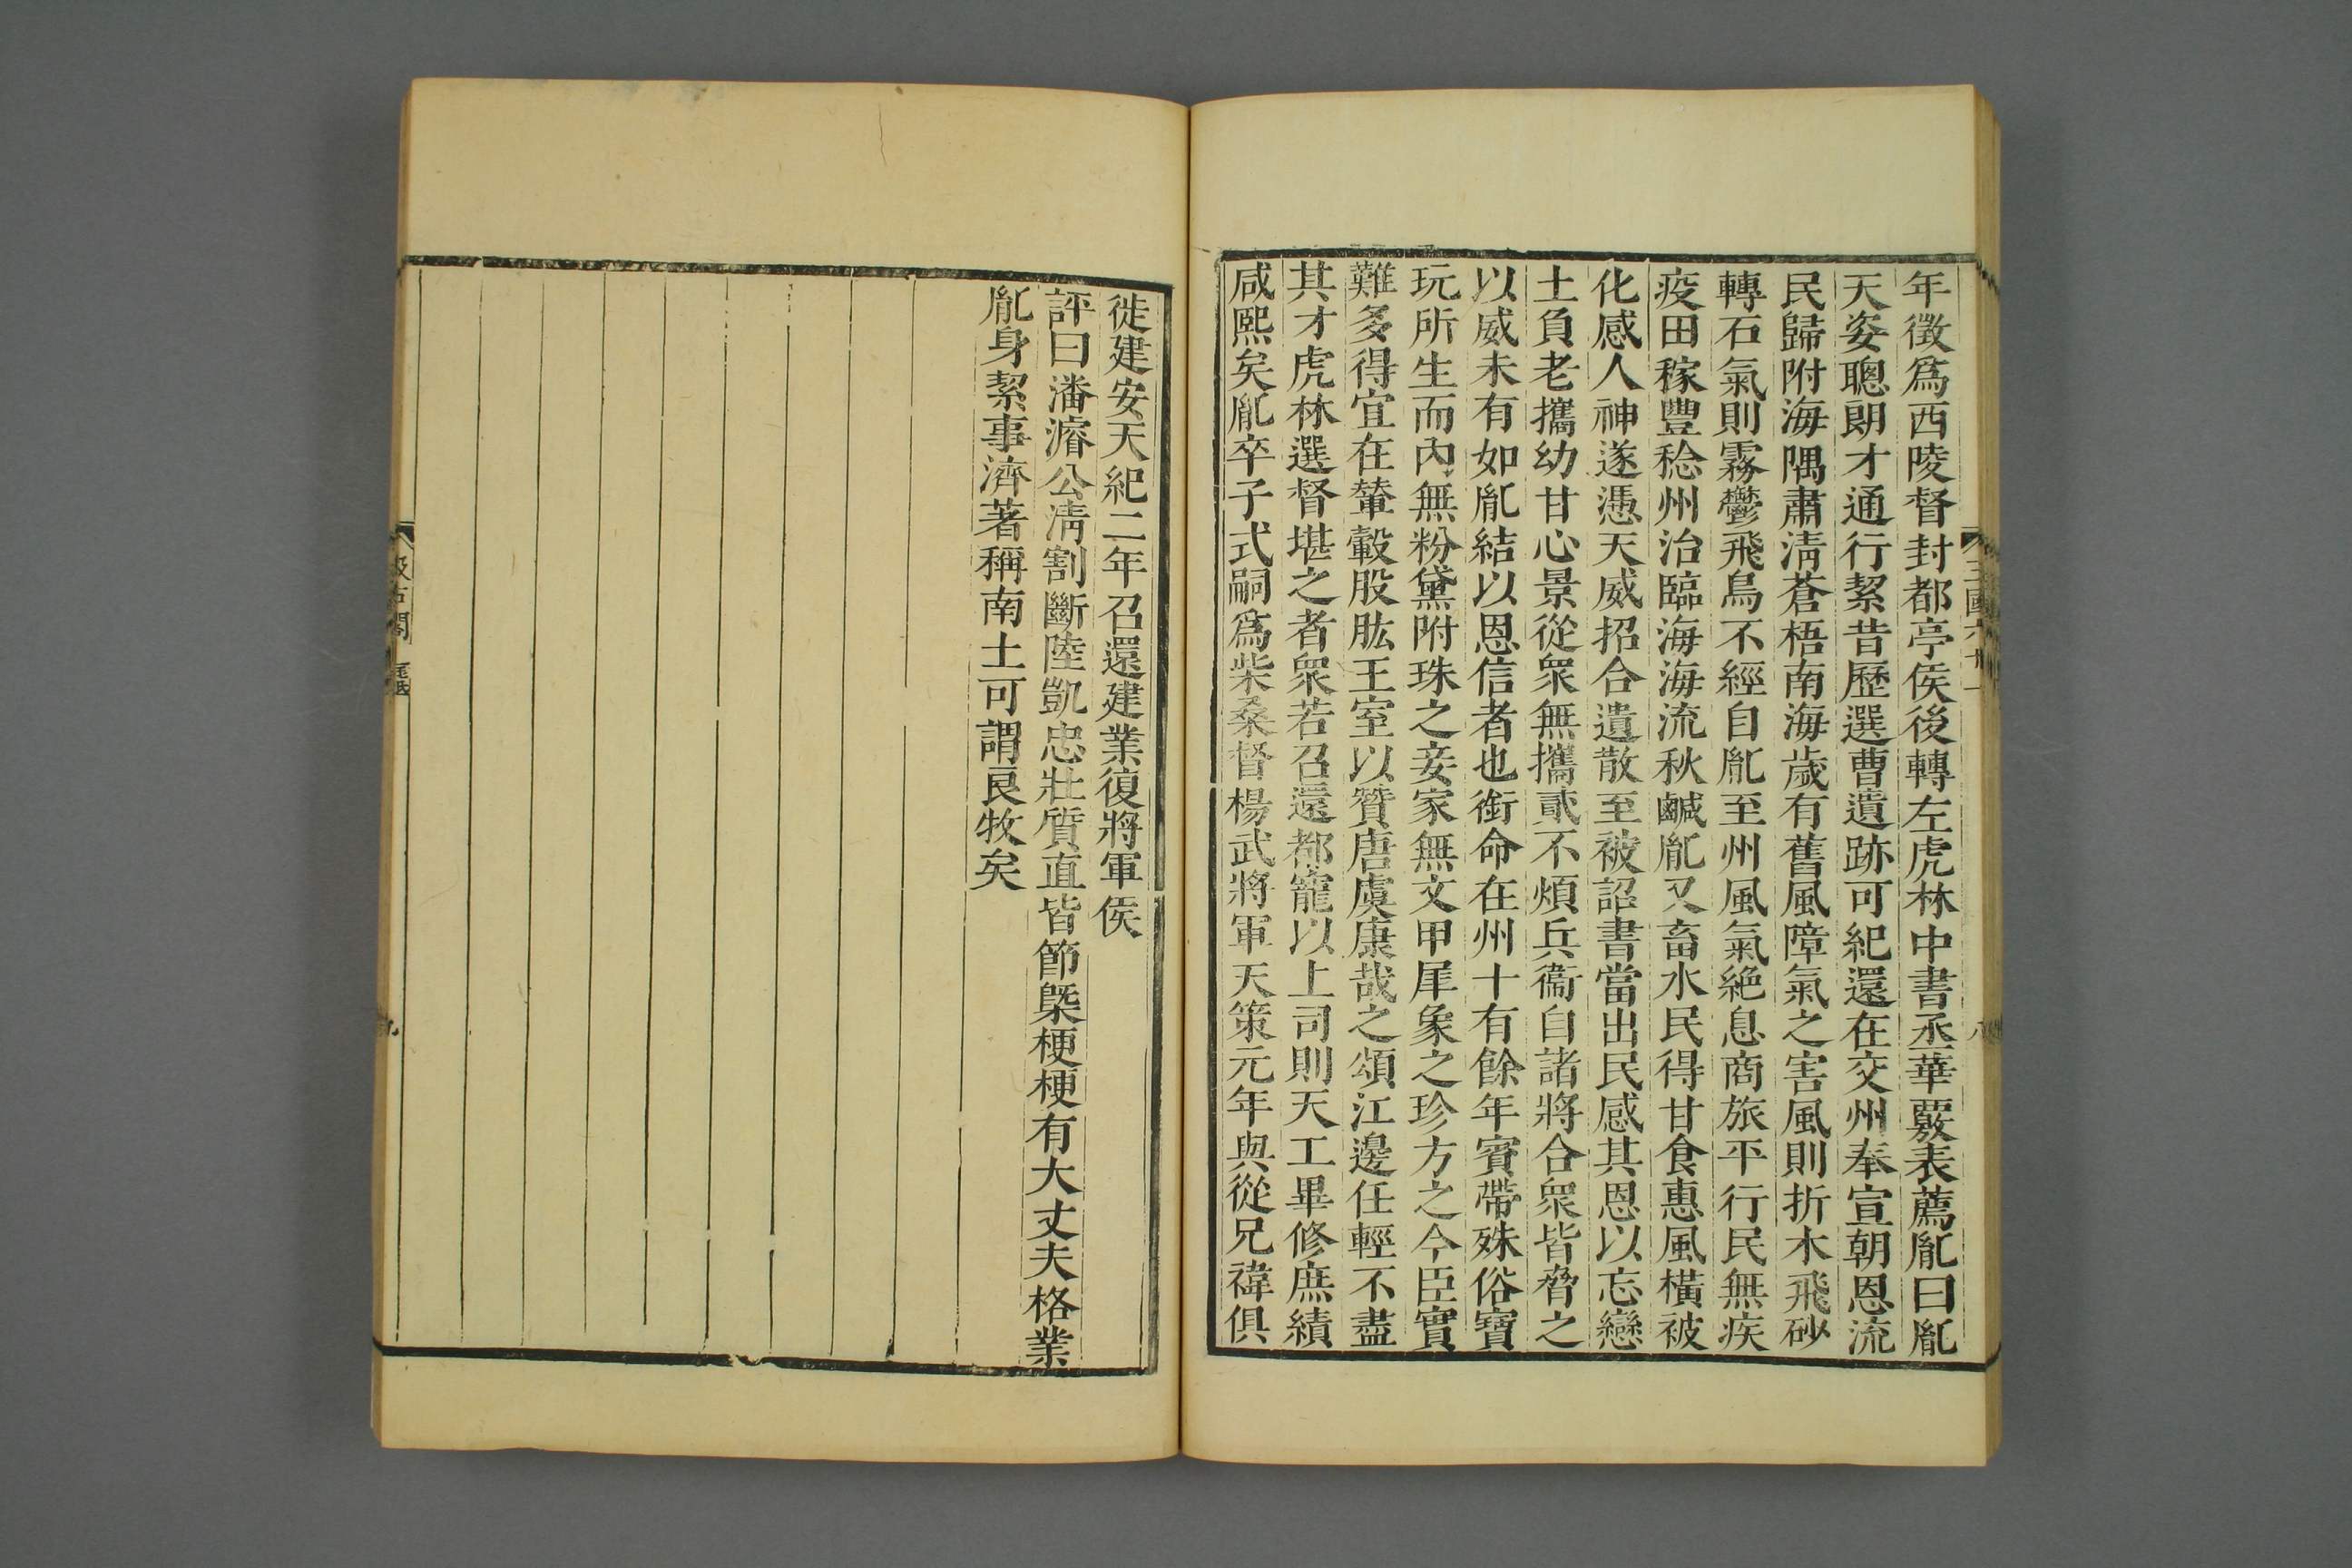 年徵爲西陵督封都亭侯後轉左虎林中書丞華覈表薦胤曰胤
天姿聰朗才通行絜昔歷選曹遺跡可紀還在交州奉宣朝恩流
民歸附海隅肅淸蒼梧南海歲有舊風障氣之害風則折木飛砂
轉石氣則霧鬱飛鳥不經自胤至州風氣絶息商旅平行民無疾
疫田稼豐稔州治臨海海流秋鹹胤又畜水民得甘食惠風橫被
化感人神遂憑天威招合遺散至被詔書當出民感其恩以忘戀
土負老攜幼甘心景從衆無攜貳不煩兵衞自諸將合衆皆脅之
以威未有如胤結以恩信者也銜命在州十有餘年賓帶殊俗寶
玩所生而內無粉黛附珠之妾家無文甲犀象之珍方之今臣實
難多得宜在輦轂股肱王室以贊唐虞康哉之頌江邊任輕不盡
其才虎林選督堪之者衆若召還都寵以上司則天工畢修庶績
咸熙矣胤卒子式嗣爲柴桑督楊武將軍天策元年與從兄禕俱
三國六十一
八
徙建安天紀二年召還建業復將軍侯
評曰潘濬公淸割斷陸凱忠壯質直皆節槩梗梗有大丈夫格業
胤身絜事濟著稱南土可謂良牧矣
汲古閣